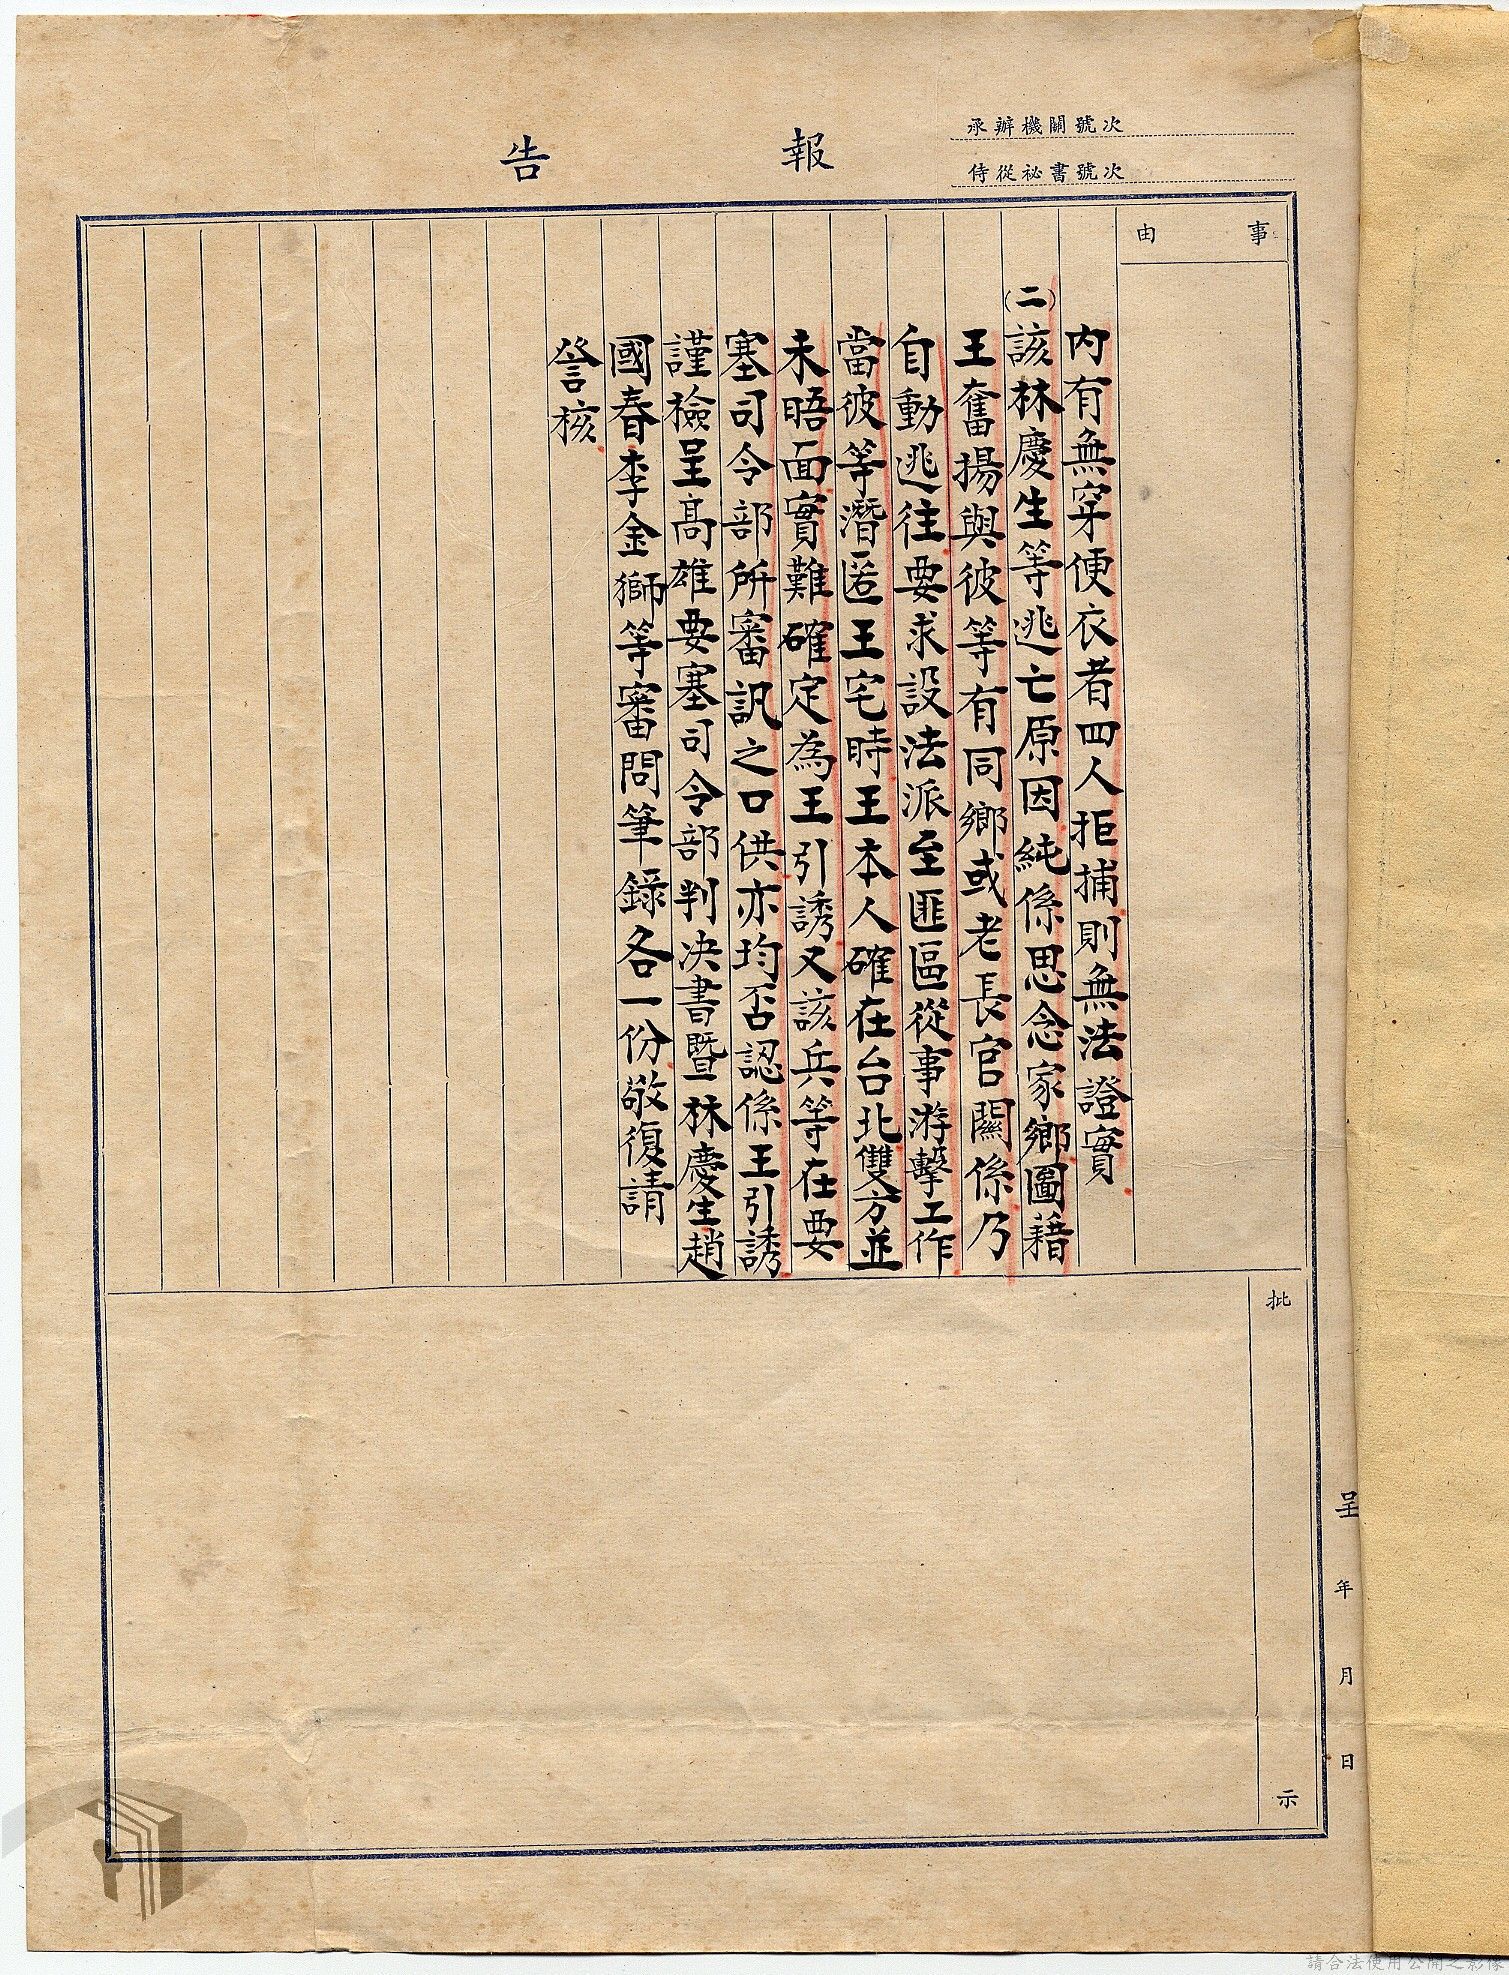 承辦機關號次
侍從祕書號次
報告
事由
內有無穿便衣者四人拒捕則無法證實
(二)該林慶生等逃亡原因純係思念家鄉圖藉
王奮揚與彼等有同鄉或老長官關係乃
自動逃往要求設法派至匪區從事游擊工作
當彼等潛匿王宅時王本人確在台北雙方並
未晤面實難確定為王引誘又該兵等在要
塞司令部所審訊之口供亦均否認係王引誘
謹檢呈高雄要塞司令部判決書暨林慶生趙
國春李金獅等審問筆錄各一份敬復請
詧核
批示
呈 年 月 日
請合法使用公開之影像